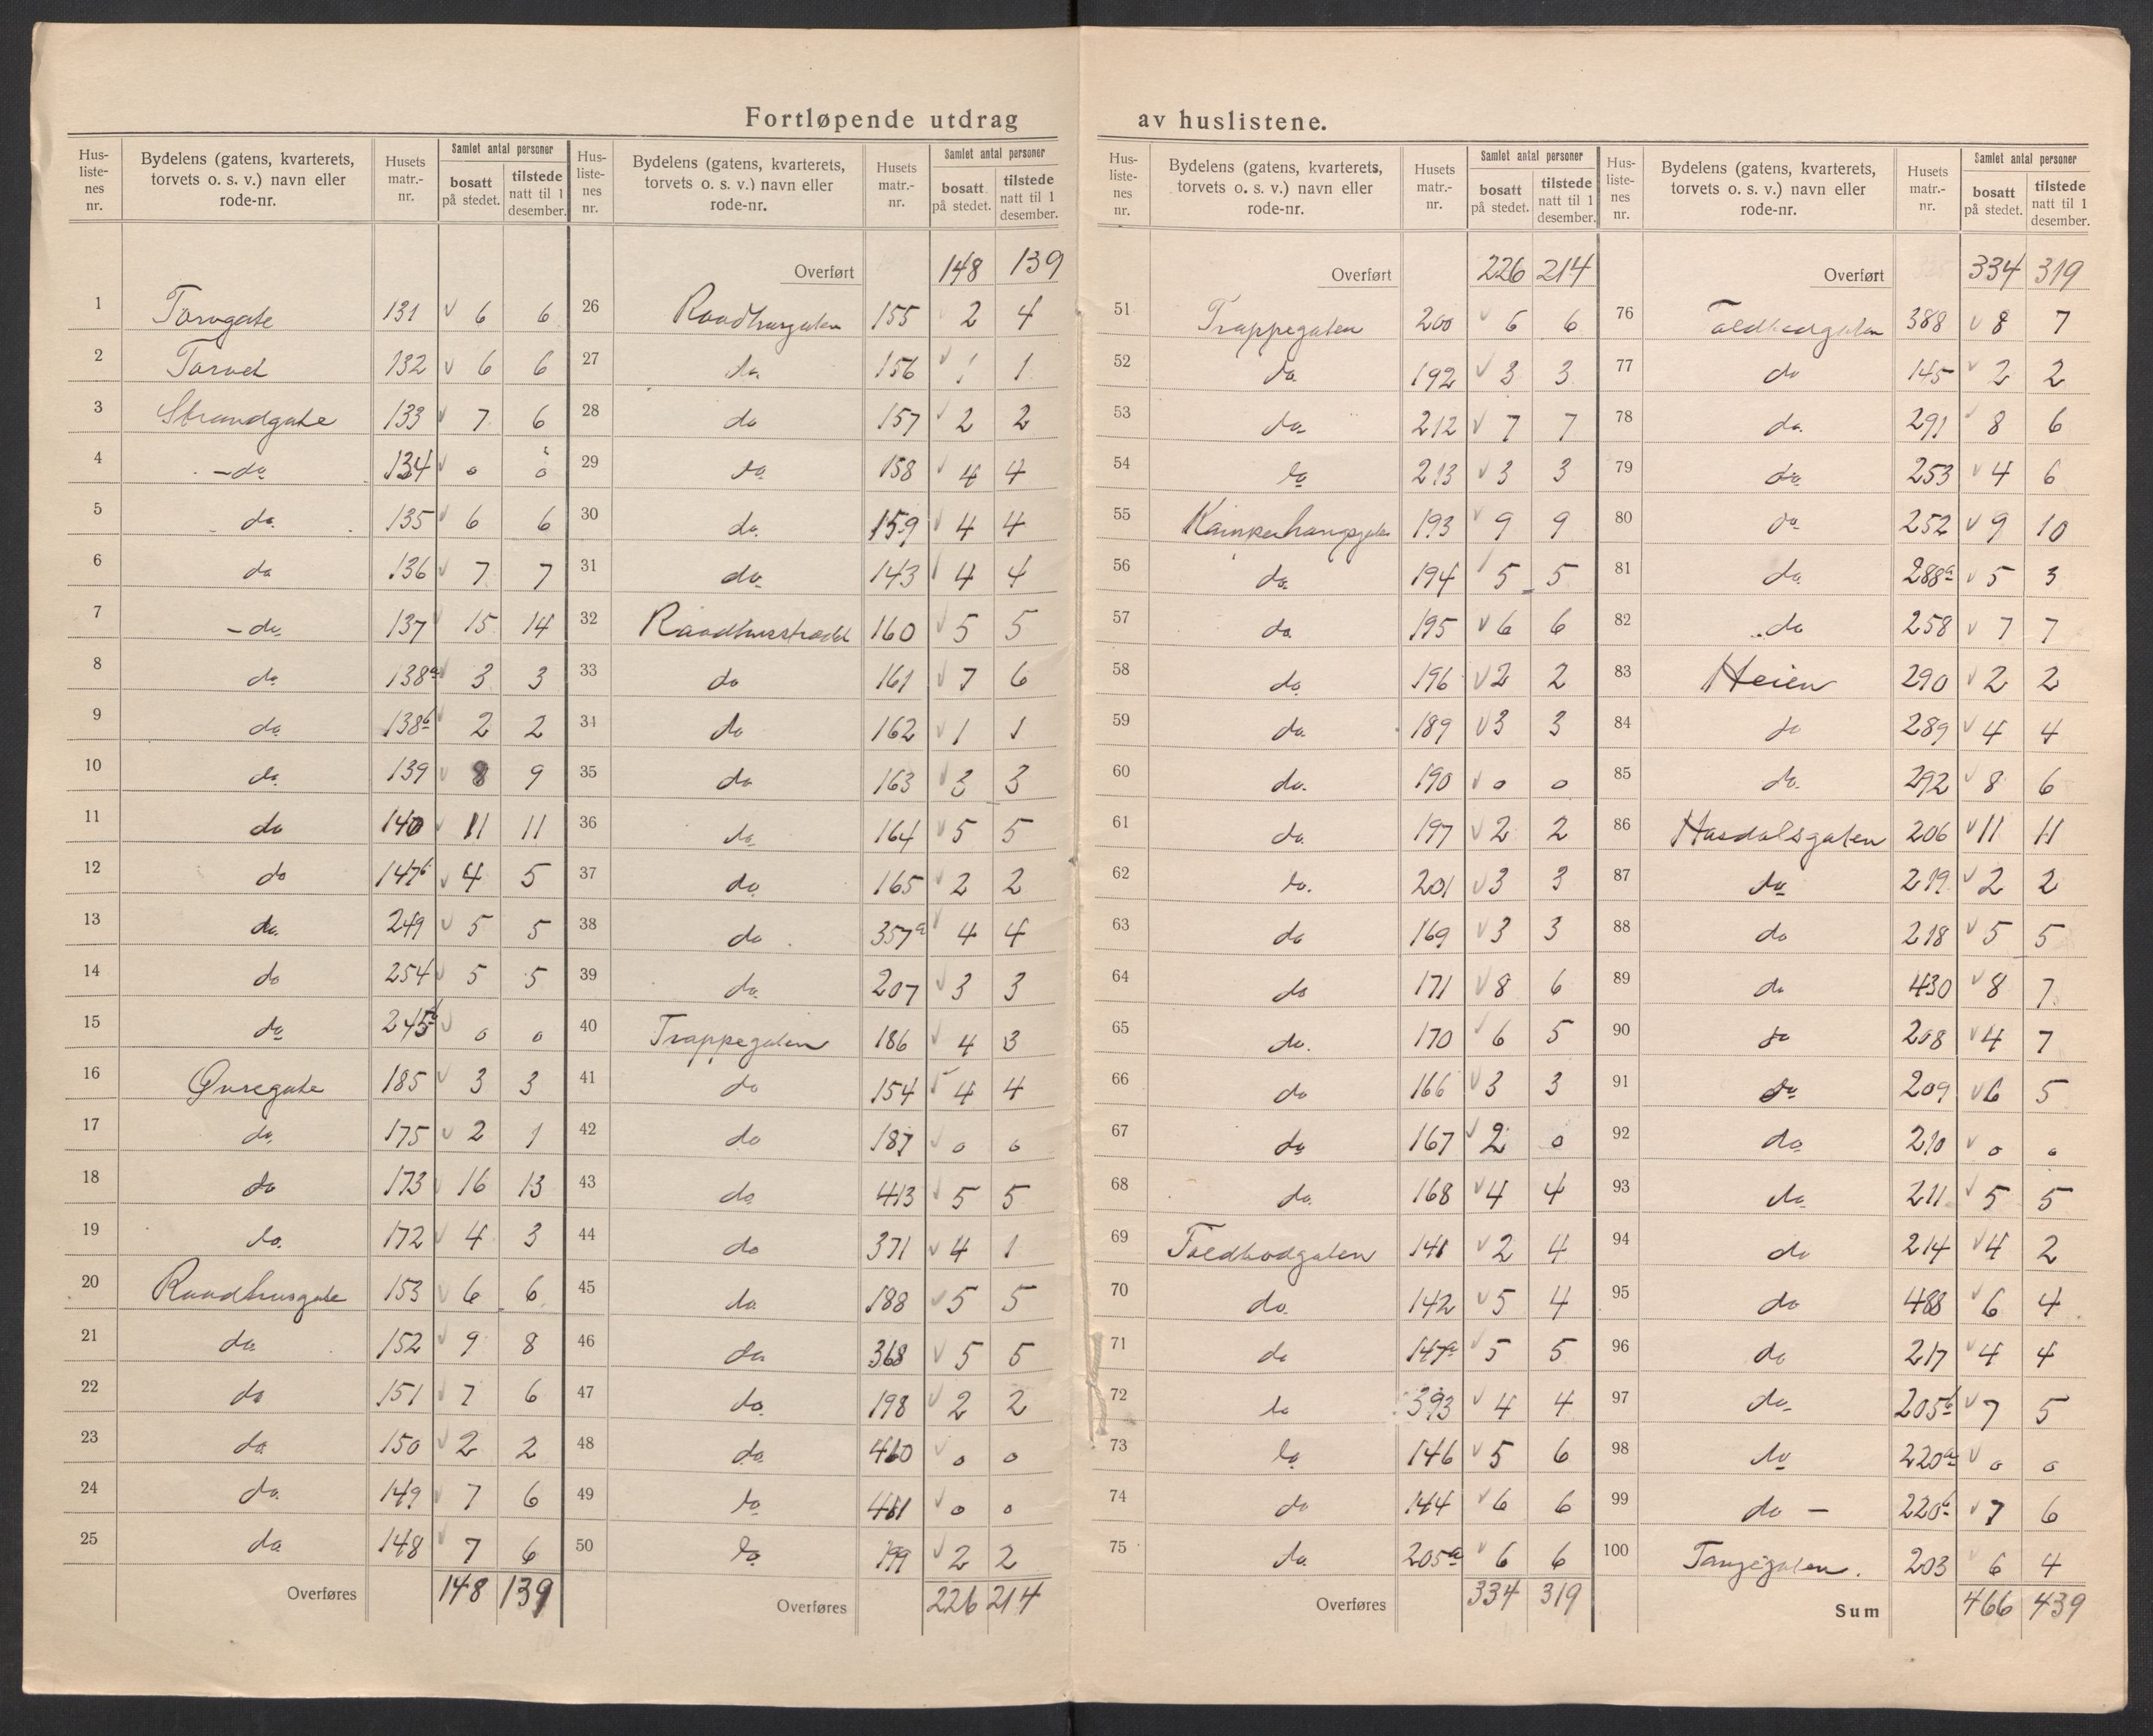 Fortløpende utdrag av huslistene.
Hus-liste-nes nr. | Bydelens (gatens, kvarterets, torvets o. s. v.) navn eller rode-nr. | Husets matr.-nr. | Samlet antal personer bosatt på stedet. | tilstede natt til 1 desember.
1 Torvgate 131 v 6 6
2 Torvet 132 v 6 6
3 Strandgate 133 v 7 6
4 - do 134 v 0 0
5 do. 135 v 6 6
6 do 136 v 7 7
7 - do. 137 v 15 14
8 do. 138a v 3 3
9 do. 138b v 2 2
10 do. 139 v 8 9
11 do 140 v 11 11
12 do 147b v 4 5
13 do. 249 v 5 5
14 do 254 v 5 5
15 do 245b v 0 0
16 Øvregate 185 v 3 3
17 do. 175 v 2 1
18 do 173 v 16 13
19 do. 172 v 4 3
20 Raadhusgate 153 v 6 6
21 do. 152 v 9 8
22 do 151 v 7 6
23 do 150 v 2 2
24 do. 149 v 7 6
25 do. 148 v 7 6
Overføres 148 139
Hus-liste-nes nr. | Bydelens (gatens, kvarterets, torvets o. s. v.) navn eller rode-nr. | Husets matr.-nr. | Samlet antal personer bosatt på stedet. | tilstede natt til 1 desember.
Overført 148 139
26 Raadhusgaten 155 2 4
27 do. 156 v 1 1
28 do 157 v 2 2
29 do 158 v 4 4
30 do. 159 v 4 4
31 do. 143 v 4 4
32 Raadhusstrædet 160 v 5 5
33 do 161 v 7 6
34 do 162 v 1 1
35 do 163 v 3 3
36 do 164 v 5 5
37 do. 165 v 2 2
38 do. 357a v 4 4
39 do. 207 v 3 3
40 Trappegaten 186 v 4 3
41 do 154 v 4 4
42 do 187 v 0 0
43 do. 413 v 5 5
44 do 371 v 4 1
45 do. 188 v 5 5
46 do. 368 v 5 5
47 do. 198 v 2 2
48 do. 460 v 0 0
49 do 461 v 0 0
50 do. 199 v 2 2
Overføres 226 214
Hus-liste-nes nr. | Bydelens (gatens, kvarterets, torvets o. s. v.) navn eller rode-nr. | Husets matr.-nr. | Samlet antal personer bosatt på stedet. | tilstede natt til 1 desember.
Overført 226 214
51 Trappegaten 200 v 6 6
52 do. 192 v 3 3
53 do. 212 v 7 7
54 do 213 v 3 3
55 193 v 9 9
56 do. 194 v 5 5
57 do. 195 v 6 6
58 do. 196 v 2 2
59 do. 189 v 3 3
60 do. 190 v 0 0
61 do. 197 v 2 2
62 do. 201 v 3 3
63 do 169 v 3 3
64 do 171 v 8 6
65 do. 170 v 6 5
66 do 166 v 3 3
67 do 167 v 2 0
68 do. 168 v 4 4
69 Toldbodgaten 141 v 2 4
70 do. 142 v 5 4
71 do 147a v 5 5
72 do 393 v 4 4
73 do 146 v 5 6
74 do 144 v 6 6
75 do. 205a v 6 6
Overføres 334 319
Hus-liste-nes nr. | Bydelens (gatens, kvarterets, torvets o. s. v.) navn eller rode-nr. | Husets matr.-nr. | Samlet antal personer bosatt på stedet. | tilstede natt til 1 desember.
Overført 334 319
76 Toldbodgaten 388 v 8 7
77 do 145 v 2 2
78 do. 291 v 8 6
79 do. 253 v 4 6
80 do 252 v 9 10
81 do. 288a v 5 3
82 do 258 v 7 7
83 Heien 290 v 2 2
84 do 289 v 4 4
85 do. 292 v 8 6
86 Hasdalsgaten 206 v 11 11
87 do 219 v 2 2
88 do 218 v 5 5
89 do 430 v 8 7
90 do 208 v 4 7
91 do. 209 v 6 5
92 do 210 v 0 0
93 do 211 v 5 5
94 do 214 v 4 2
95 do 488 v 6 4
96 do 217 v 4 4
97 do. 205b v 7 5
98 do 220a v 0 0
99 do - 220b v 7 6
100 Tangegaten. 203 v 6 4
Sum 466 439